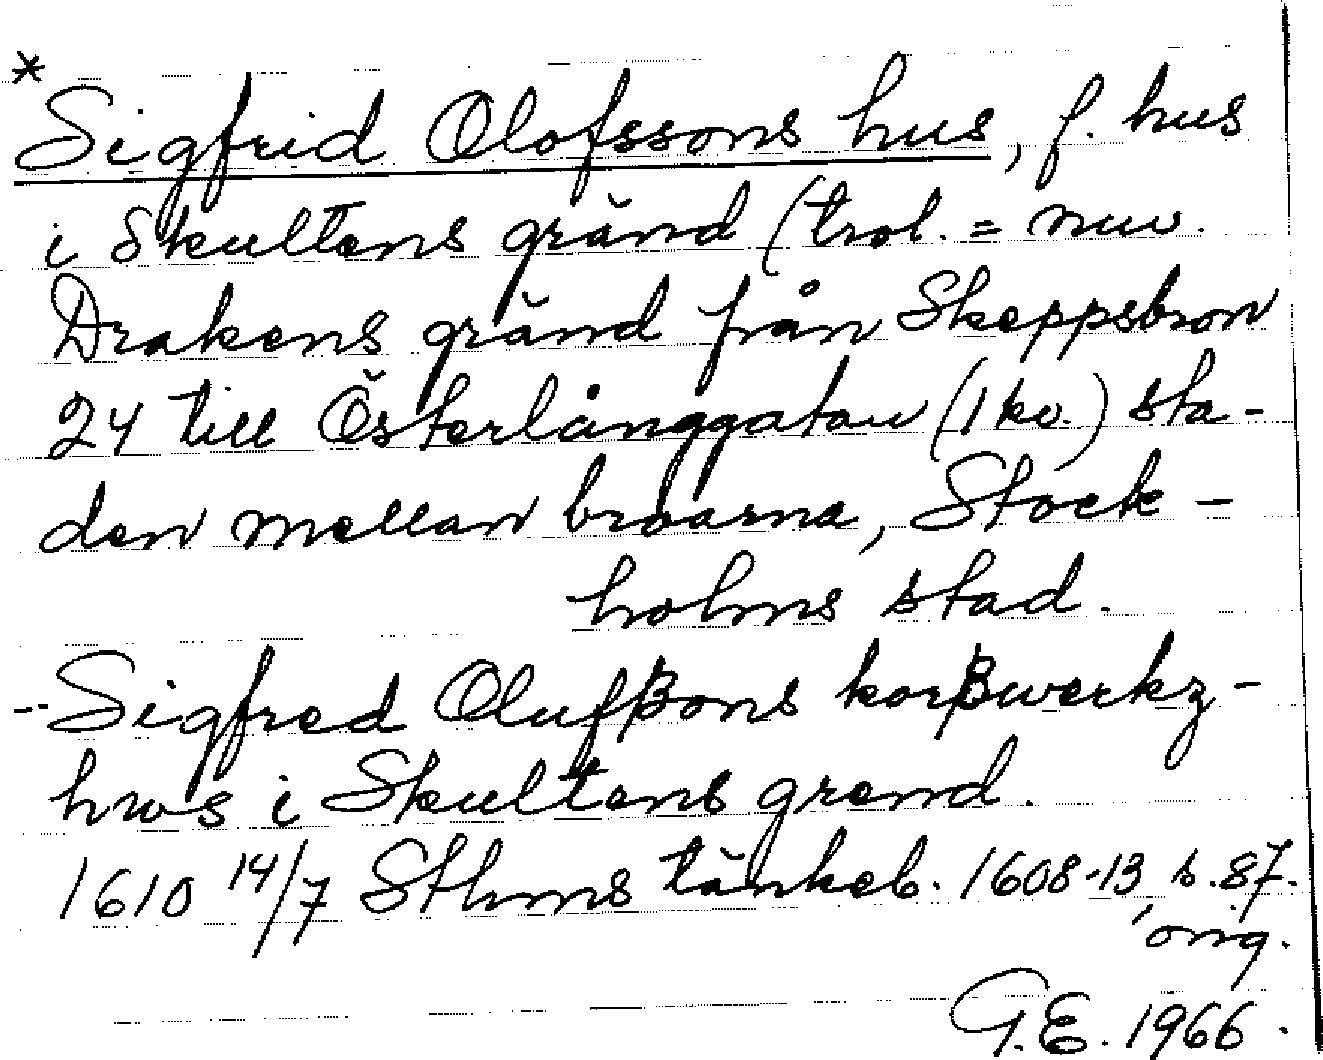 * Sigfrid Olofssons hus, f. hus
i Skultens gränd (trol. = nuv.
Drakens gränd från Skeppsbron
24 till Österlånggatan (1 kv.) sta-
den mellan broarna, Stock-
holms stad.
-- Sigfred Olufßons korßwerkz-
hws i Skultens grend.
1610 14/7 Sthms tänkeb. 1608-13, s. 87.
orig.
G.E. 1966.